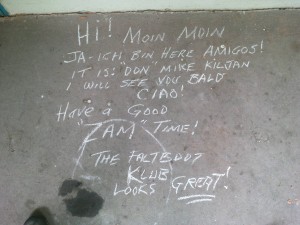 Hi! MOIN MOIN
JA-ICH BIN HERE AMIGOS!
IT IS: "DON" MIKE KILJAN
I WILL SEE YOU BALD
CIAO!
Have a Good
"JAM" TIME!
THE FALTBOOT
KLUB
LOOKS GREAT!